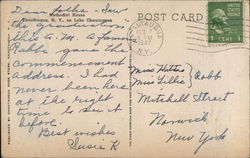 Dear Folks - Saw
Methodist House
Chautauqua, N. Y., on Lake Chautauqua
the graduation
this A.M. A famous
Rabbi gave the
commencement
address. I had
never been here
at the right
time to see it
before.
Best wishes
Susie R
POST CARD
CHAUTAUQUA
1947
N.Y.
1 CENT 1
Misses Hattie
Miss Lillie } Robb
Mitchell Street
Norwich
New York